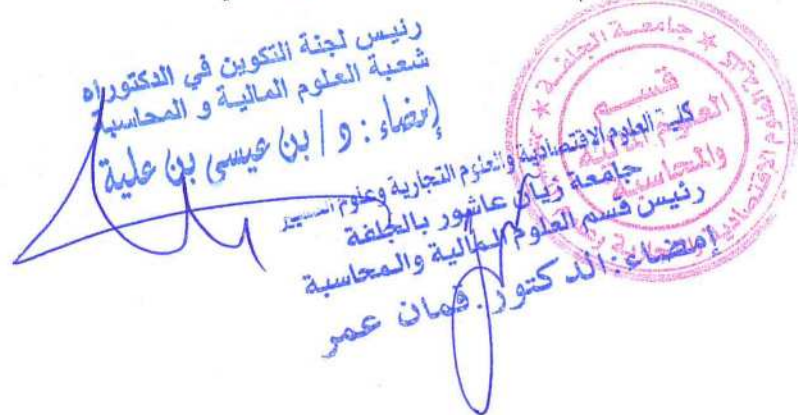 رئيس لجنة التكوين في الدكتوراه
شعبة العلوم المالية و المحاسبة
إمضاء : د / بن عيسى بن علية
كلية العلوم الاقتصادية والعلوم التجارية وعلوم التسيير
جامعة زيان عاشور بالجلفة
رئيس قسم العلوم المالية والمحاسبة
إمضاء : الدكتور . قمان عمر
جامعة الجلفة
قسم
العلوم المالية
والمحاسبة